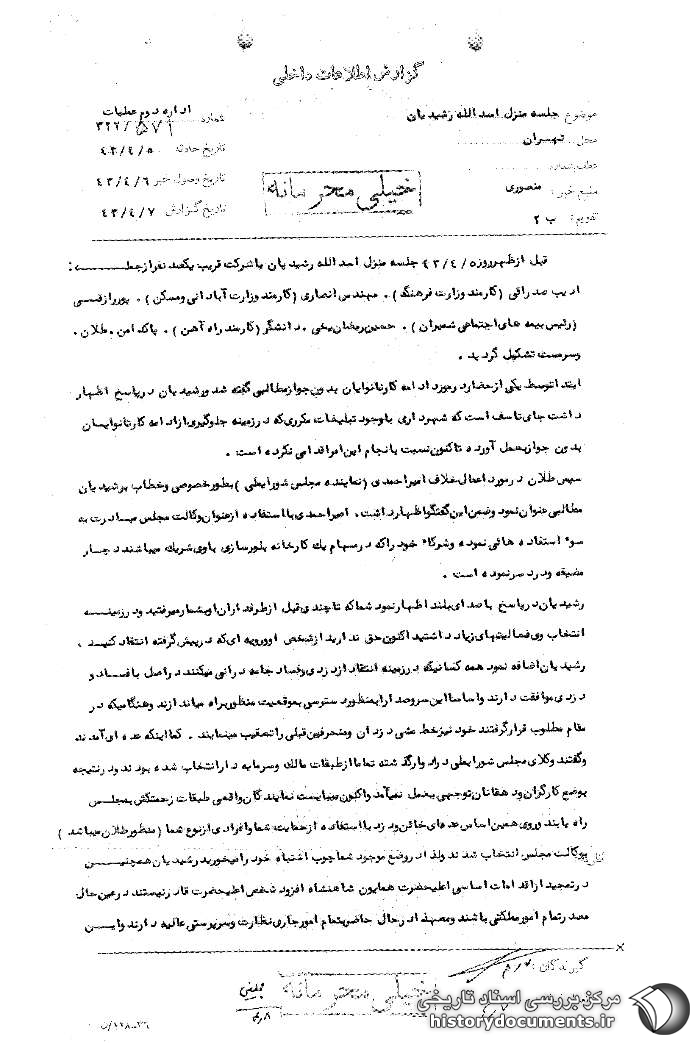 گزارش اطلاعات داخلی
موضوع جلسه منزل اسد الله رشیدیان
اداره دوم عملیات
شماره ۳۲۲/۵۷۱
محل تهران
تاریخ حادثه ۴۳/۴/۵
تاریخ وصول خبر ۴۳/۴/۶
منبع خبر: منصوری
خیلی محرمانه
تاریخ گزارش ۴۳/۴/۷
تقویم: ب ۲
قبل از ظهر روز ۴۳/۴/۵ جلسه منزل اسد الله رشیدیان با شرکت قریب یکصد نفر از جمله:
ادیب صدراقی (کارمند وزارت فرهنگ). مهندس انصاری (کارمند وزارت آبادانی و مسکن).
(رئیس بیمه های اجتماعی شمیران). حسین رمضان یخی. دانشگر (کارمند راه آهن). پاکدامن. طلان.
وسرمست تشکیل گردید.
ابتدا توسط یکی از حضار در مورد ادامه کار نانوایان بدون جواز مطالبی گفته شد و رشیدیان در پاسخ اظهار
داشت جای تاسف است که شهرداری با وجود تبلیغات مکرری که در زمینه جلوگیری از ادامه کار نانوایان
بدون جواز بعمل آورده تاکنون نسبت بانجام این امر اقدامی نکرده است.
سپس طلان در مورد اعمال خلاف امیراحمدی (نماینده مجلس شورایملی) بطور خصوصی و خطاب برشیدیان
مطالبی عنوان نمود و ضمن این گفتگو اظهار داشت. امیراحمدی با استفاده از عنوان وکالت مجلس مبادرت به
سوء استفاده هائی نموده و شرکاء خود را که در سهام یک کارخانه بلورسازی با وی شریک میباشند دچار
مضیقه و دردسر نموده است.
رشیدیان در پاسخ با صدای بلند اظهار نمود شما که تا چندی قبل از طرفداران او بشمار میرفتید و در زمینه
انتخاب وی فعالیتهای زیاد داشتید اکنون حق ندارید از شخص او و رویه ای که در پیش گرفته انتقاد کنید.
رشیدیان اضافه نمود همه کسانیکه در زمینه انتقاد از دزدی و فساد جامعه درانی میکنند در اصل با فساد و
دزدی موافقت دارند و اساسا این سروصدا را بمنظور دسترسی بموقعیت منظور براه میاندازند و هنگامیکه در
مقام مطلوب قرار گرفتند خود نیز خط مشی دزدان و منحرفین قبلی را تعقیب مینمایند. کما اینکه عده ای آمدند
و گفتند وکلای مجلس شورایملی در ادوار گذشته تماما از طبقات مالک و سرمایه دار انتخاب شده بودند و در نتیجه
بوضع کارگران و دهقانان توجهی بعمل نمیآمد و اکنون میبایست نمایندگان واقعی طبقات زحمتکش بمجلس
راه یابند و روی همین اساس عده ای خائن و دزد با استفاده از حمایت شما و افرادی از نوع شما (منظور طلان میباشد)
بوکالت مجلس انتخاب شدند و لذا در وضع موجود شما چوب اشتباه خود را میخورید رشیدیان همچنین
در تمجید از اقدامات اساسی اعلیحضرت همایون شاهنشاه افزود شخص اعلیحضرت قادر نیستند در عین حال
مصدر تمام امور مملکتی باشند و معهذا در حال حاضر بتمام امور جاری نظارت و سرپرستی عالیه دارند و این
گیرندگان:
خیلی محرمانه
مرکز بررسی اسناد تاریخی
historydocuments.ir